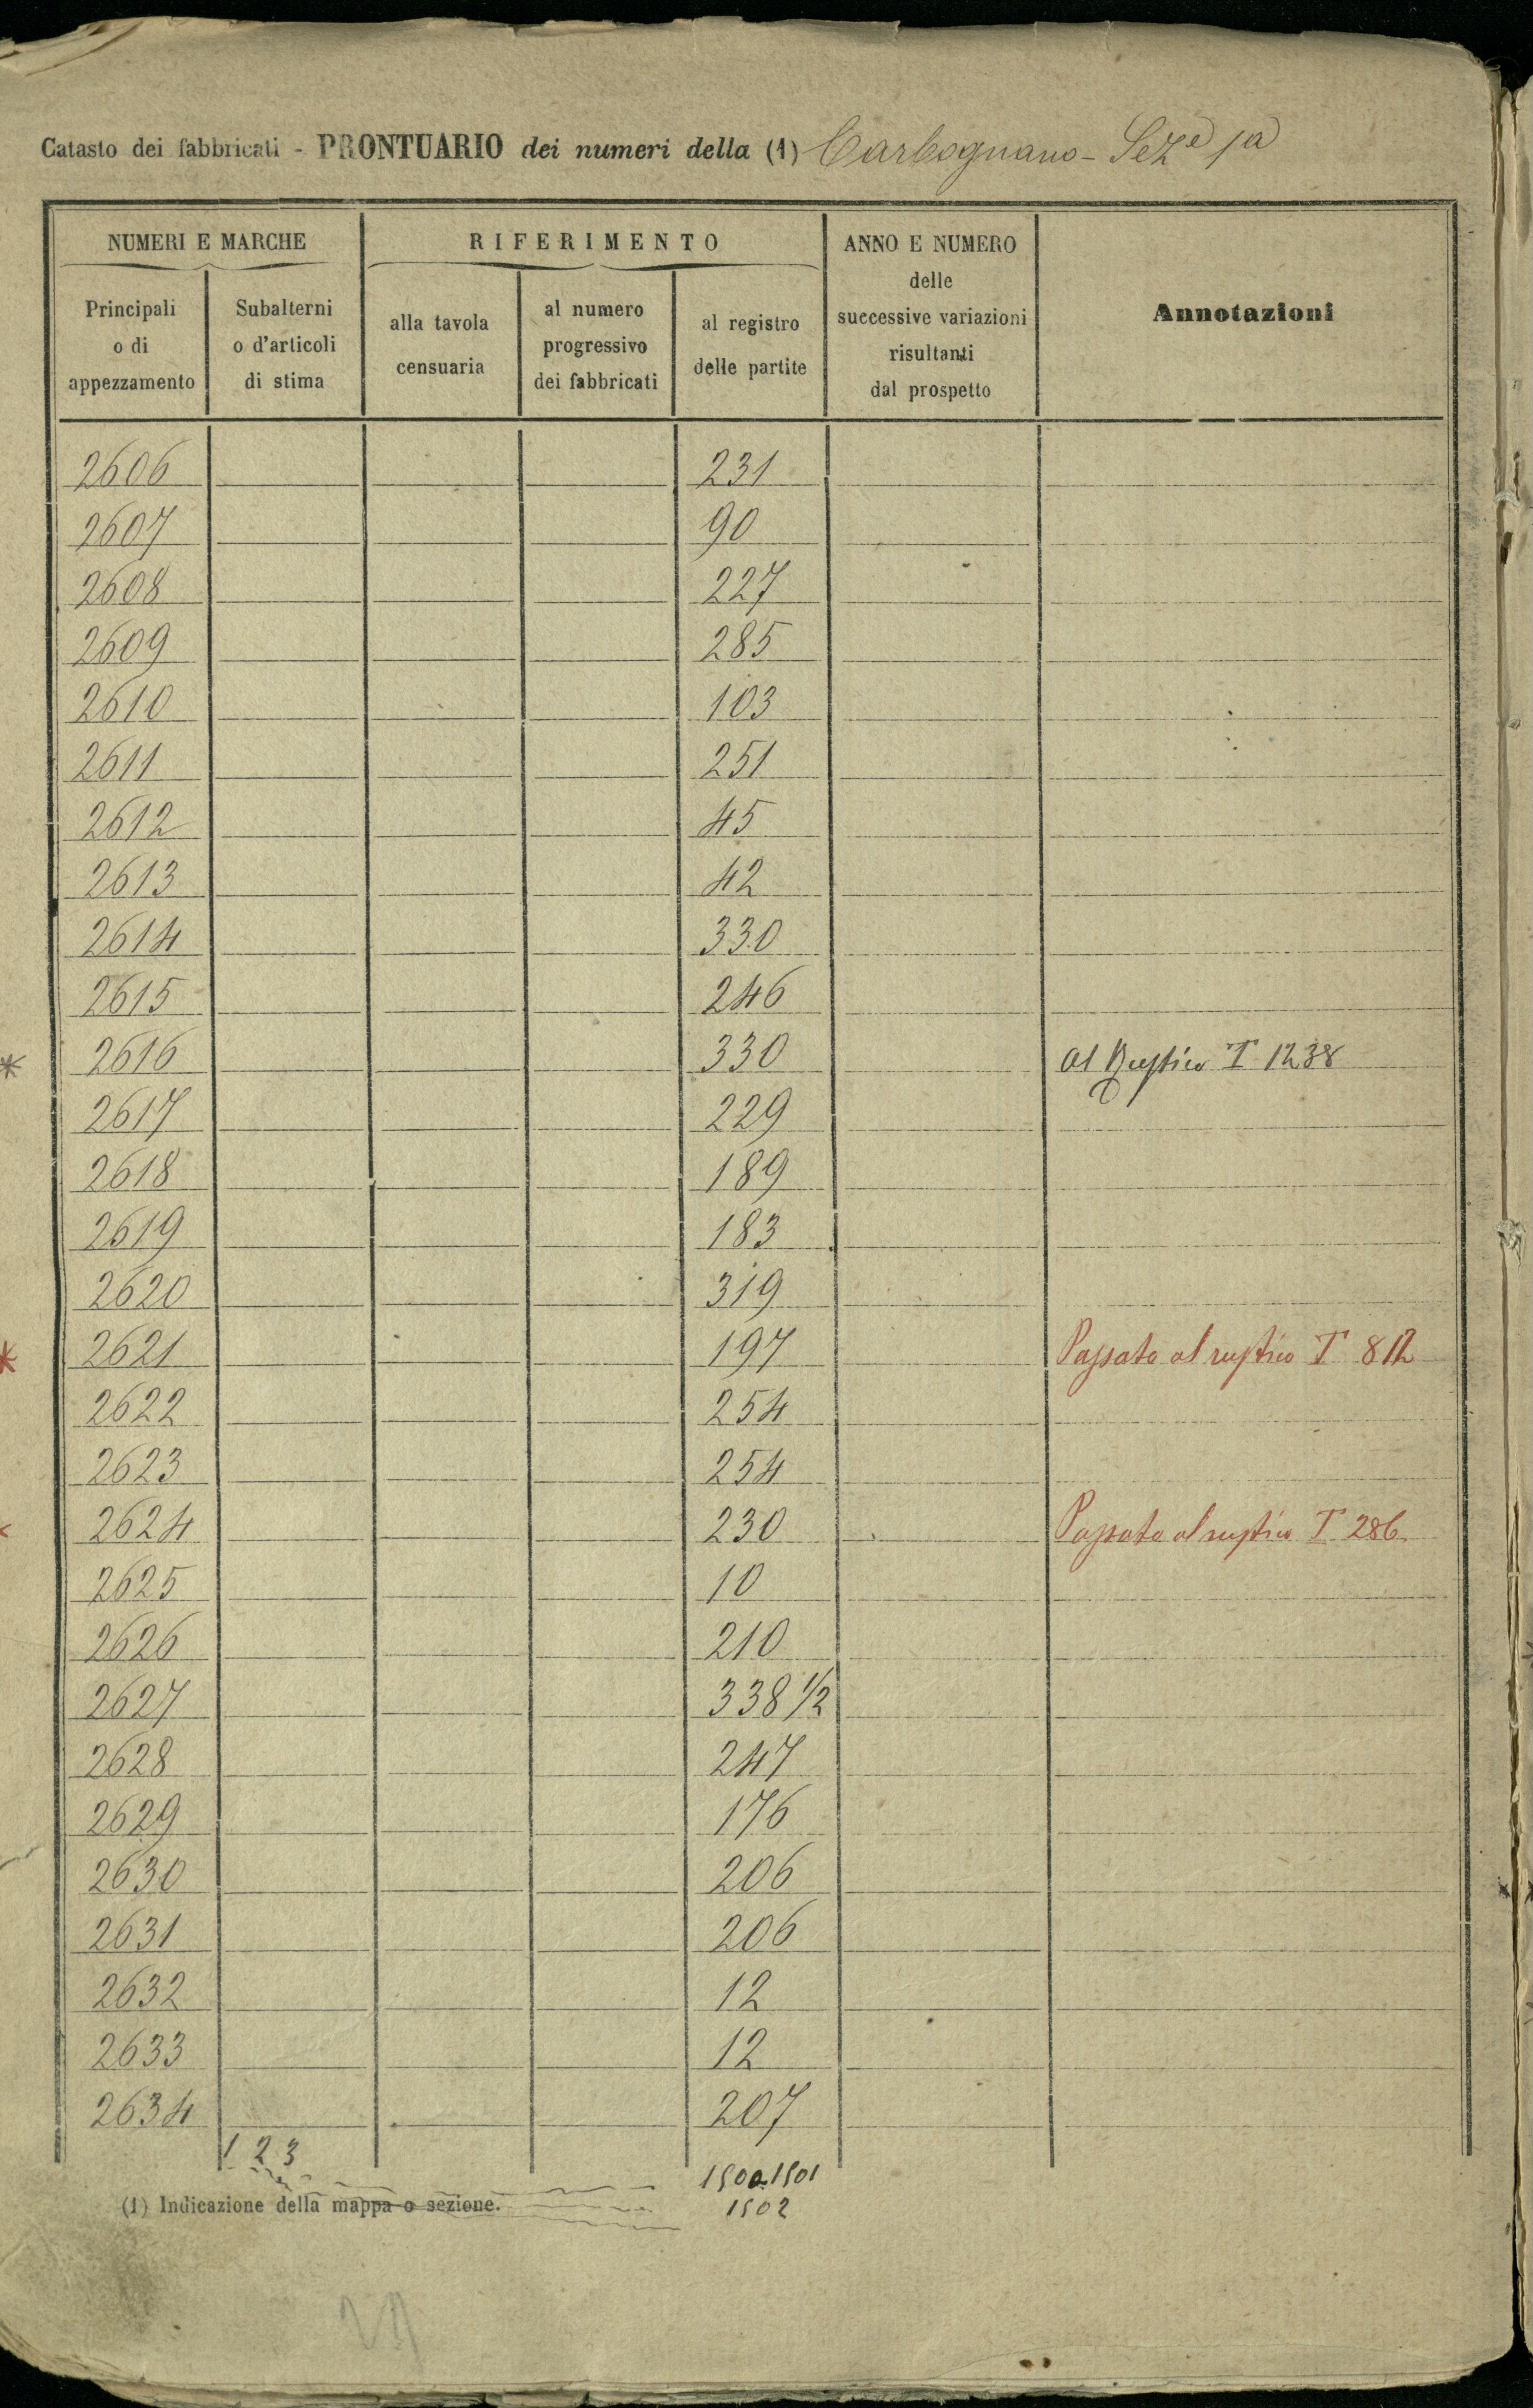 Catasto dei fabbricati - PRONTUARIO dei numeri della (1) Carbognano - Sez.e 1a
NUMERI E MARCHE
RIFERIMENTO
ANNO E NUMERO
delle
successive variazioni
risultanti
dal prospetto
Annotazioni
Principali
o di
appezzamento
Subalterni
o d'articoli
di stima
alla tavola
censuaria
al numero
progressivo
dei fabbricati
al registro
delle partite
2606 231
2607 90
2608 227
2609 285
2610 103
2611 251
2612 45
2613 42
2614 330
2615 246
2616 330 Al Rustico T 1238
2617 229
2618 189
2619 183
2620 319
2621 197 Passato al rustico T 812
2622 254
2623 254
2624 230 Passato al rustico T 286
2625 10
2626 210
2627 338 1/2
2628 247
2629 176
2630 206
2631 206
2632 12
2633 12
2634 207
1 2 3
1500-1501
1502
(1) Indicazione della mappa o sezione.